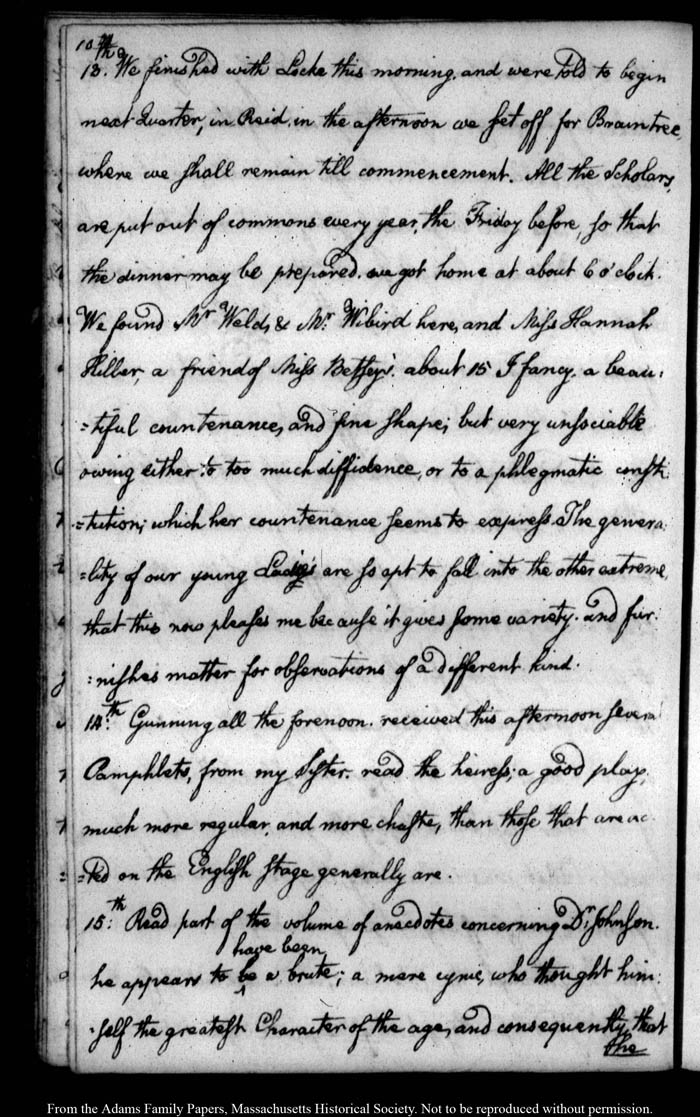 10th
13. We finished with Locke this morning, and were told to begin
next Quarter, in Reid. in the afternoon we set off for Braintree,
where we shall remain till commencement. All the Scholars,
are put out of commons every year, the Friday before, so that
the dinner may be prepared. we got home at about 6 o'clock.
We found Mr Weld, & Mr. Wibird here, and Miss Hannah
Hiller, a friend of Miss Betsey's. about 15 I fancy. a beau:
=tiful countenance, and fine shape; but very unsociable
owing either to too much diffidence, or to a phlegmatic consti
=tution; which her countenance seems to express. The genera:
=lity of our young Ladies are so apt to fall into the other extreme,
that this now pleases me because it gives some variety. and fur:
:nishes matter for observations of a different kind.
14.th Gunning all the forenoon. received this afternoon several
Pamphlets, from my Sister. read the heiress; a good play,
much more regular, and more chaste, than those that are ac
=ted on the English stage generally are.
15:th Read part of the volume of anecdotes concerning Dr. Johnson.
have been
he appears to be a brute; a mere cynic, who thought him:
:self the greatest Character of the age, and consequently, that
the
From the Adams Family Papers, Massachusetts Historical Society. Not to be reproduced without permission.